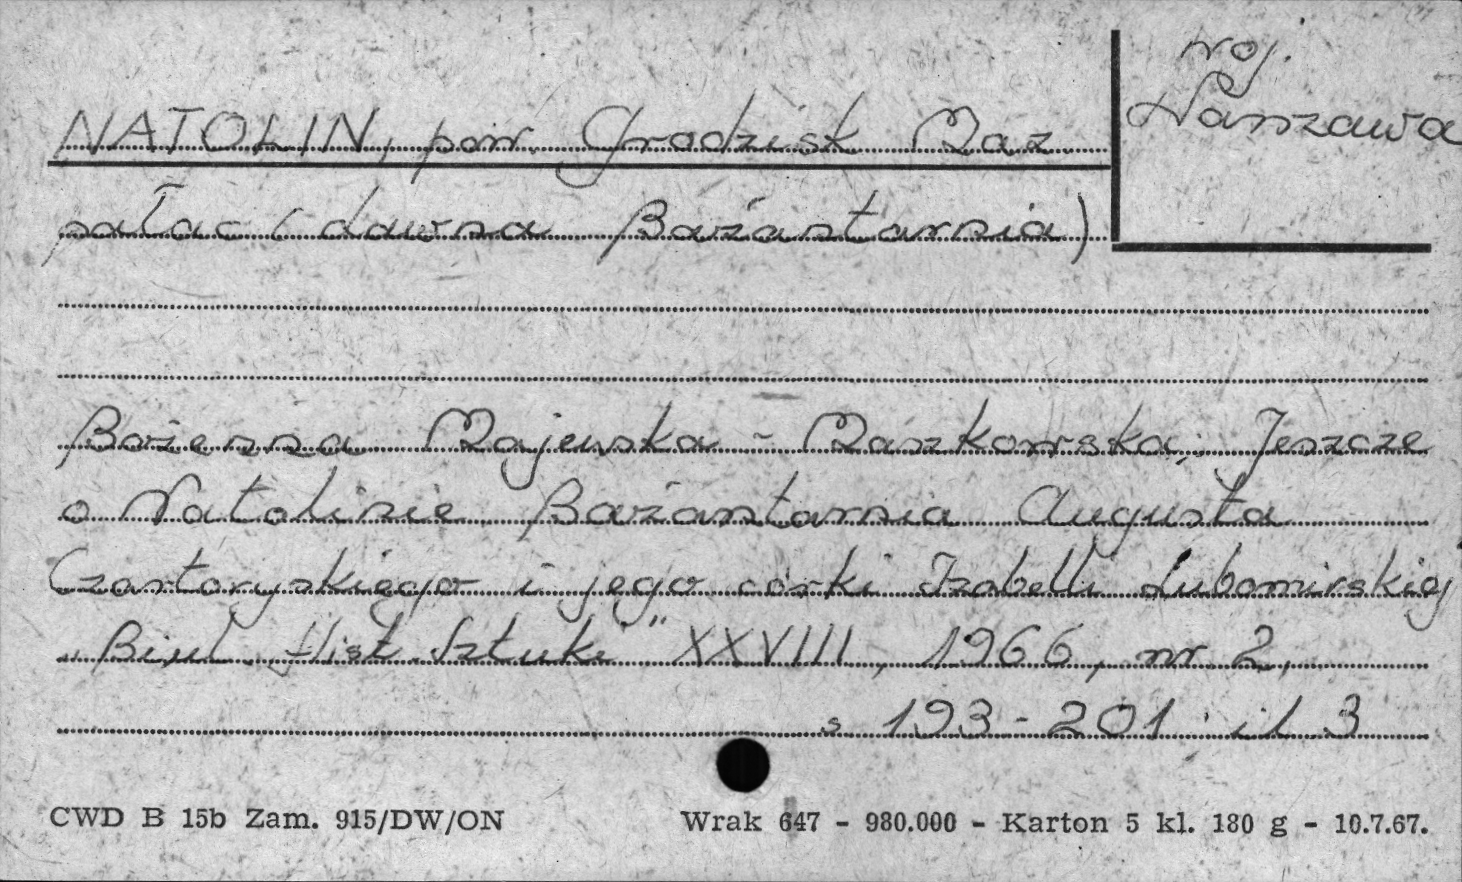 woj.
Warszawa
NATOLIN, pow. Grodzisk Maz.
pałac (dawna Bażantarnia)
Bożenna Majewska-Maszkowska, Jeszcze
o Natolinie Bażantarnia Augusta
Czartoryskiego i jego córki Izabelli Lubomirskiej
"Biul. Hist. Sztuki" XXVIII, 1966, nr 2,
s 193-201 il. 3
CWD B 15b Zam. 915/DW/ON Wrak 647 - 980.000 - Karton 5 kl. 180 g - 10.7.67.